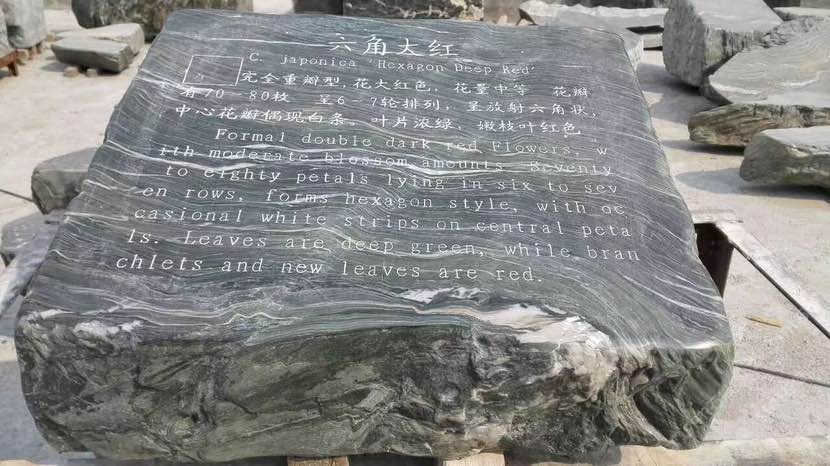 六角大红
C. japonica 'Hexagon Deep Red'
完全重瓣型，花大红色，花量中等 花瓣
有70-80枚 呈6-7轮排列，呈放射六角状，
中心花瓣偶现白条。叶片浓绿，嫩枝叶红色
Formal double dark red Flowers, w
ith moderate blossom amounts. Seventy
to eighty petals lying in six to sev
en rows, forms hexagon style, with oc
casional white strips on central peta
ls. Leaves are deep green, while bran
chlets and new leaves are red.